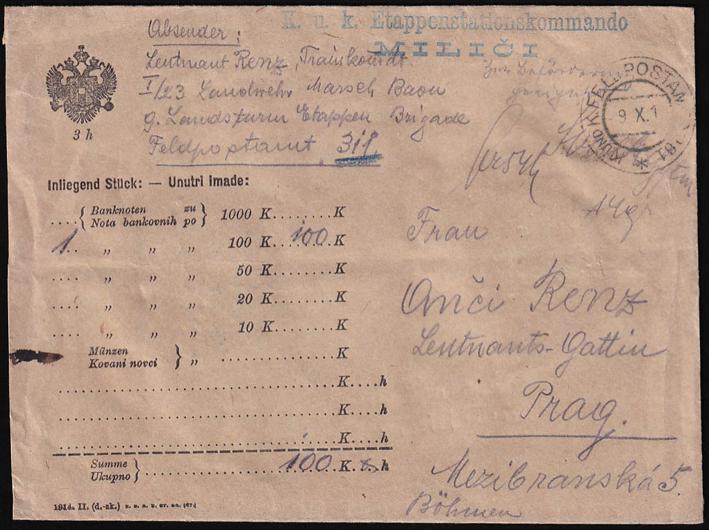 K. u. k. Etappenstationskommando
MILIČI
Absender:
Leutnant Renz, Trainkomdt.
I/23 Landwehr Marsch Baon
9. Landsturm Etappen Brigade
Feldpostamt 311
3 h
9 X. 1
Inliegend Stück: — Unutri imade:
Banknoten zu
Nota bankovnih po
1000 K........K
1 „ „ „ 100 K..100..K
.... „ „ „ 50 K........K
.... „ „ „ 20 K........K
.... „ „ „ 10 K........K
Münzen
Kovani novci
„ ........K
K....h
K....h
K....h
Summe
Ukupno
100 K. h
1914. II. (d.-sk.)
Frau
Anči Renz
Leutnants-Gattin
Prag.
Mezibranská 5.
Böhmen